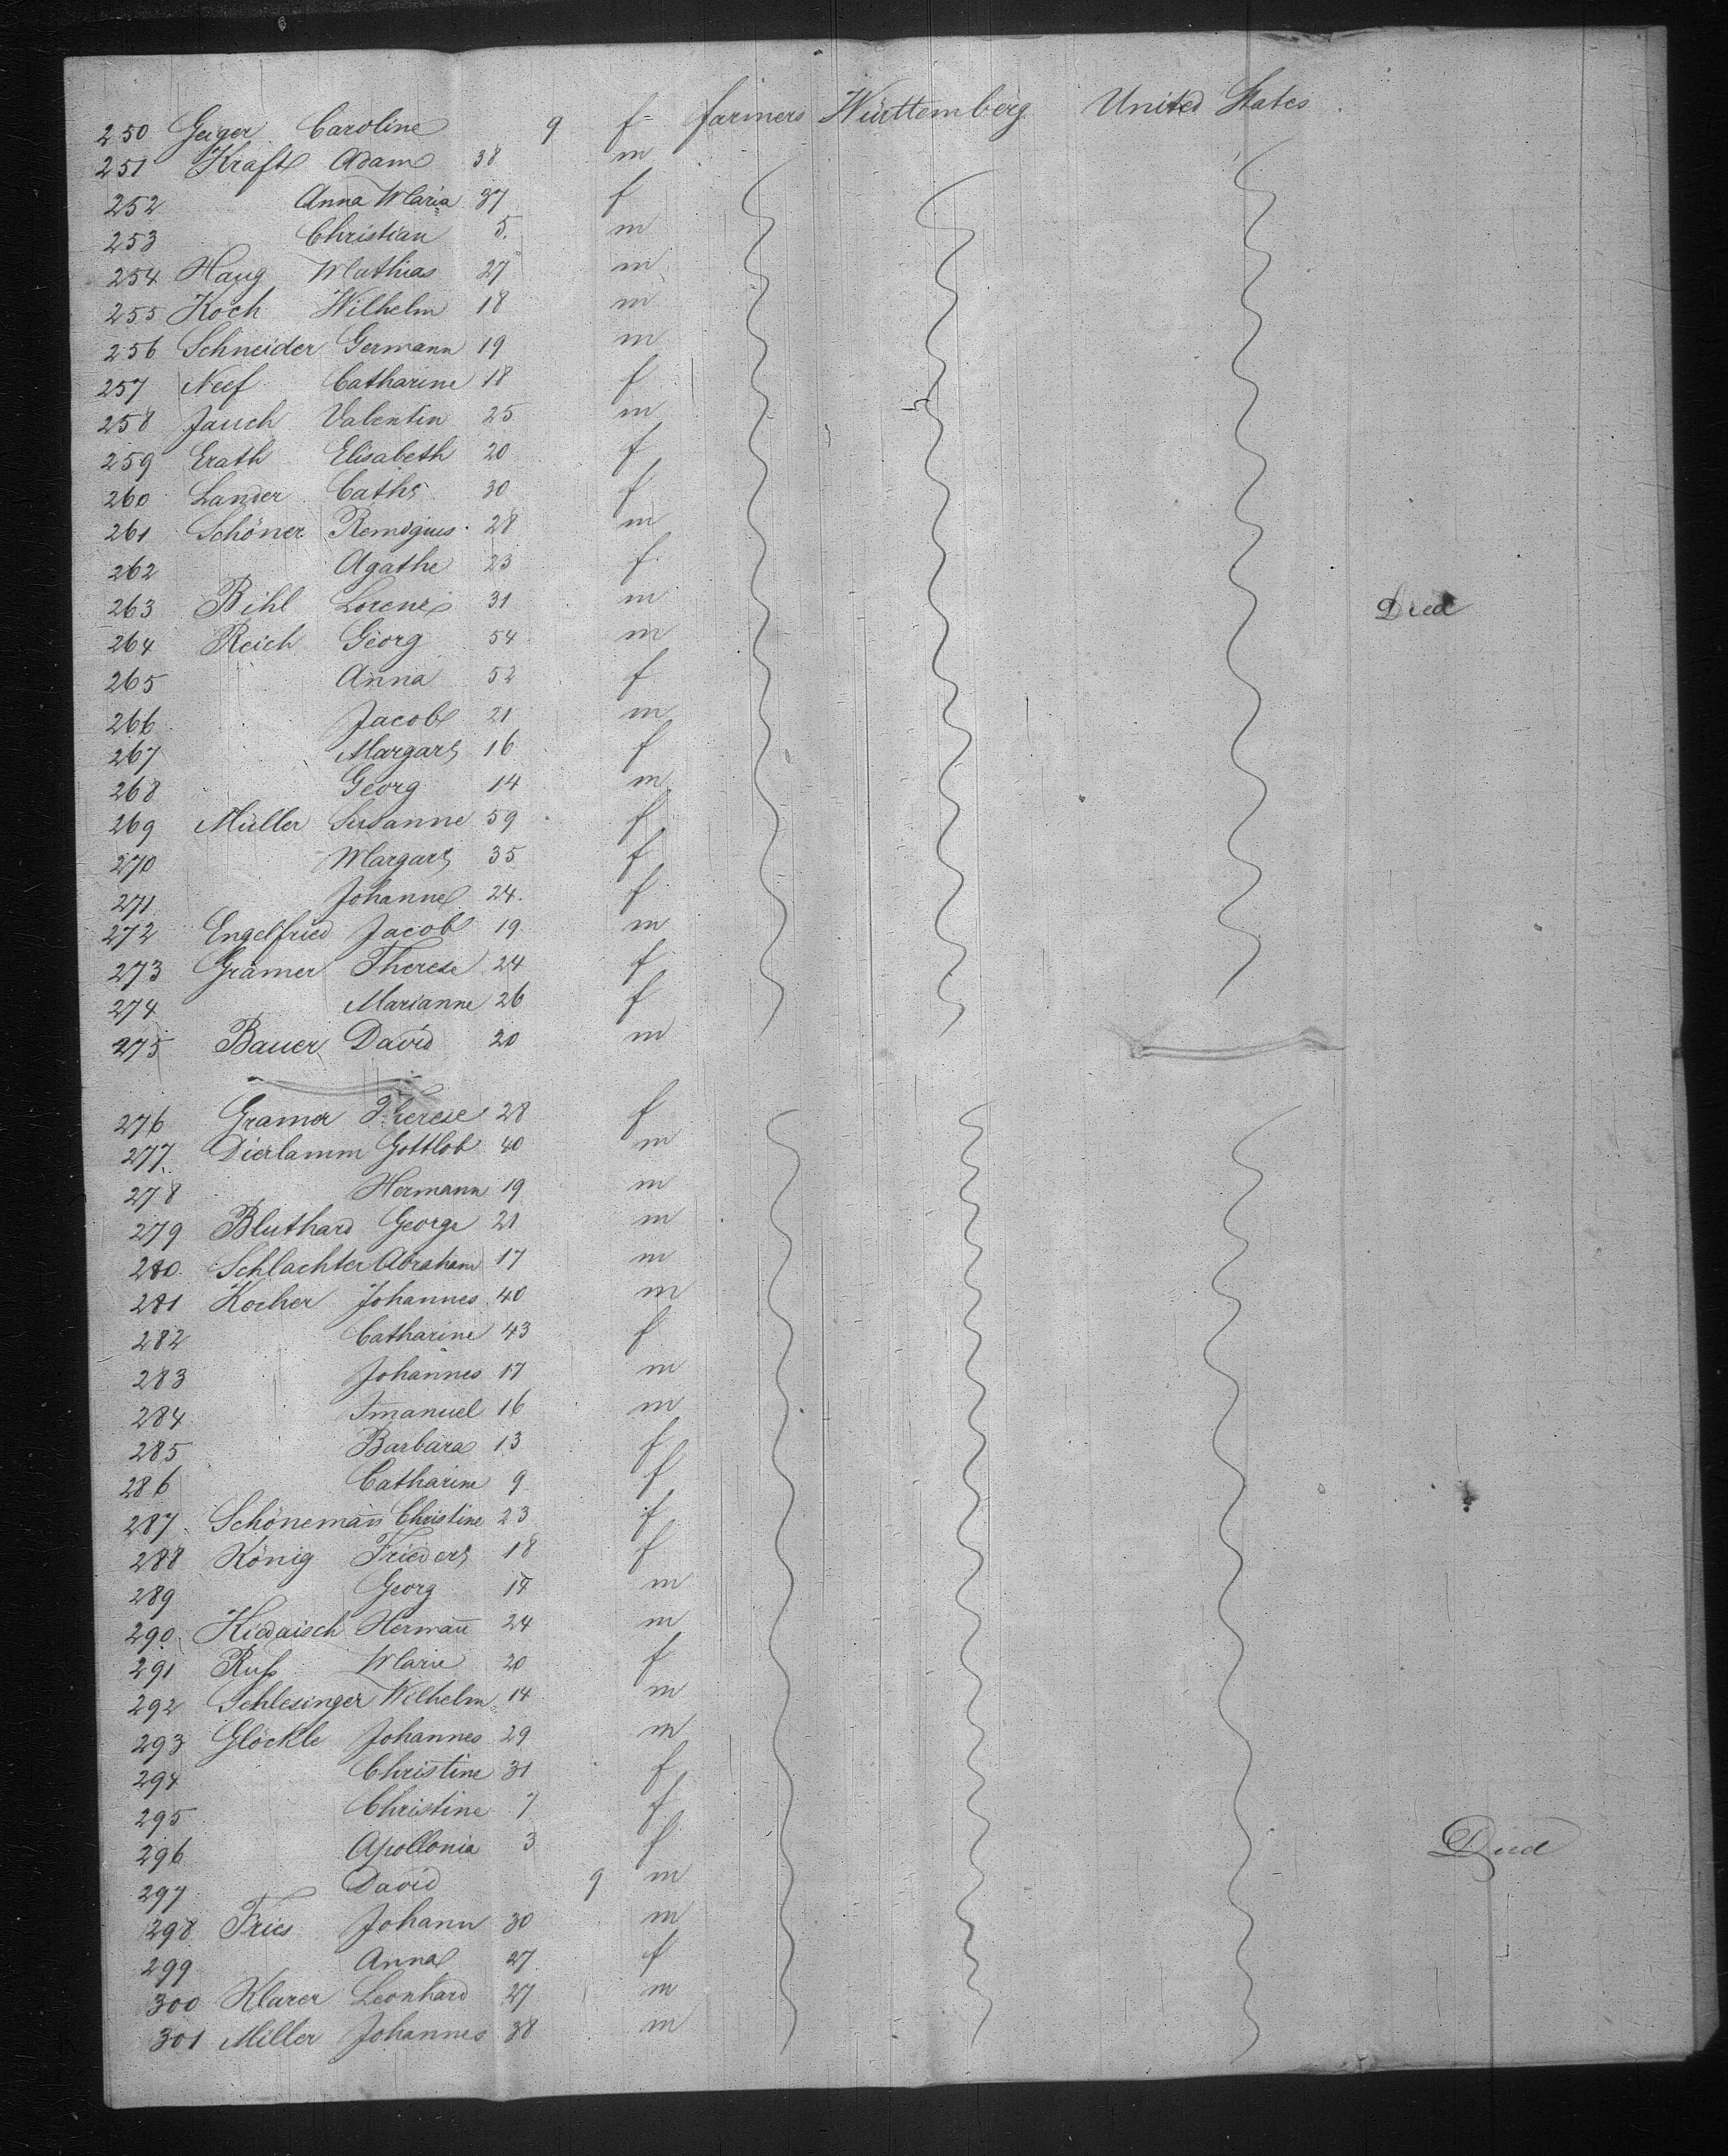 250 Geiger Caroline 9 f farmers Württemberg United States
251 Kraft Adam 38 m
252 Anna Maria 37 f
253 Christian 5 m
254 Haug Mathias 27 m
255 Koch Wilhelm 18 m
256 Schneider Germann 19 m
257 Neef Catharine 18 f
258 Jauch Valentin 25 m
259 Erath Elisabeth 20 f
260 Lander Cath 30 f
261 Schöner Remigius 28 m
262 Agathe 23 f
263 Bihl Lorenz 31 m Died
264 Reich Georg 54 m
265 Anna 52 f
266 Jacob 21 m
267 Margar 16 f
268 Georg 14 m
269 Müller Susanne 59 f
270 Margar 35 f
271 Johanne 24 f
272 Engelfried Jacob 19 m
273 Gramer Therese 24 f
274 Marianne 26 f
275 Bauer David 20 m
276 Gramer Therese 28 f
277 Dierlamm Gottlob 40 m
278 Hermann 19 m
279 Bluthard George 21 m
280 Schlachter Abraham 17 m
281 Kocher Johannes 40 m
282 Catharine 43 f
283 Johannes 17 m
284 Imanuel 16 m
285 Barbara 13 f
286 Catharine 9 f
287 Schönemañ Christine 23 f
288 König Frieder 18 f
289 Georg m
290 Hiedaisch Hermañ 24 m
291 Ruß Marie 20 f
292 Schlesinger Wilhelm 14 m
293 Glöckle Johannes 29 m
294 Christine 31 f
295 Christine 7 f
296 Apollonia 3 f Died
297 David 9 m
298 Fries Johann 30 m
299 Anna 27 f
300 Klarer Leonhard 27 m
301 Miller Johannes 38 m